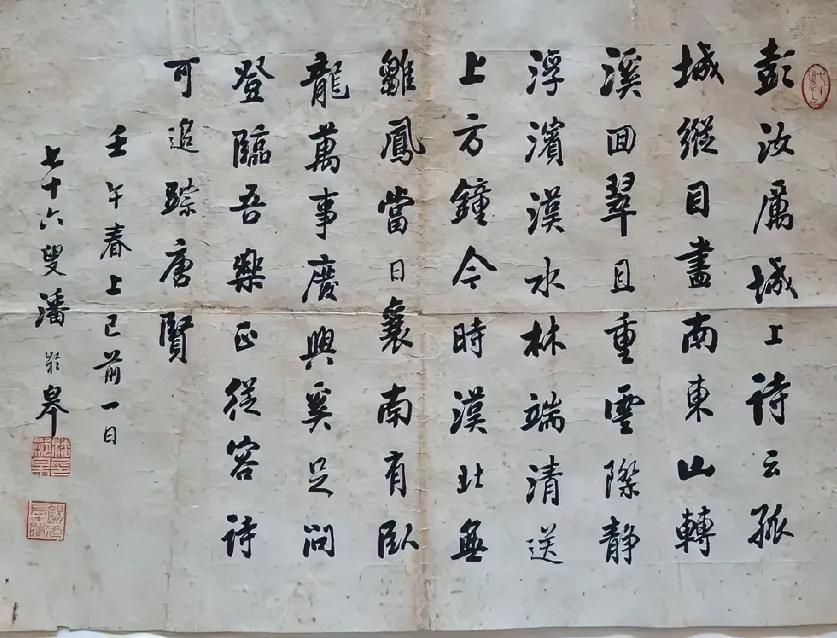 彭汝厲城上诗云孤
城縱目盡南東山轉
溪回翠且重雲際静
浮濱漢水林端清送
上方鐘今時漢北無
雛鳳當日襄南有臥
龍萬事廢興奚足問
登臨吾樂正從容诗
可追踪唐賢
壬午春上巳前一日
七十六叟潘齡皋